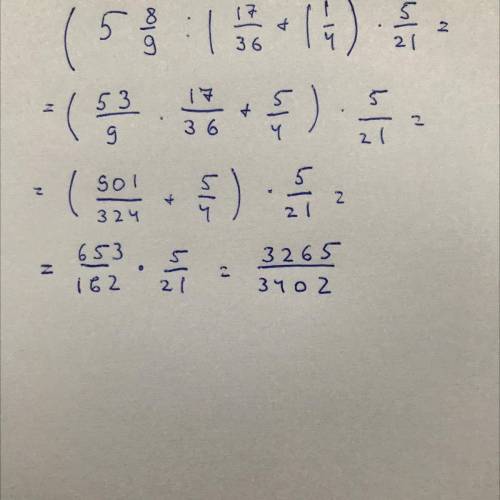 ( 5 8/9 : 1 17/36 + 1 1/4 ) · 5/21 =
= ( 53/9 · 17/36 + 5/4 ) · 5/21 =
= ( 901/324 + 5/4 ) · 5/21 =
= 653/162 · 5/21 = 3265/3402